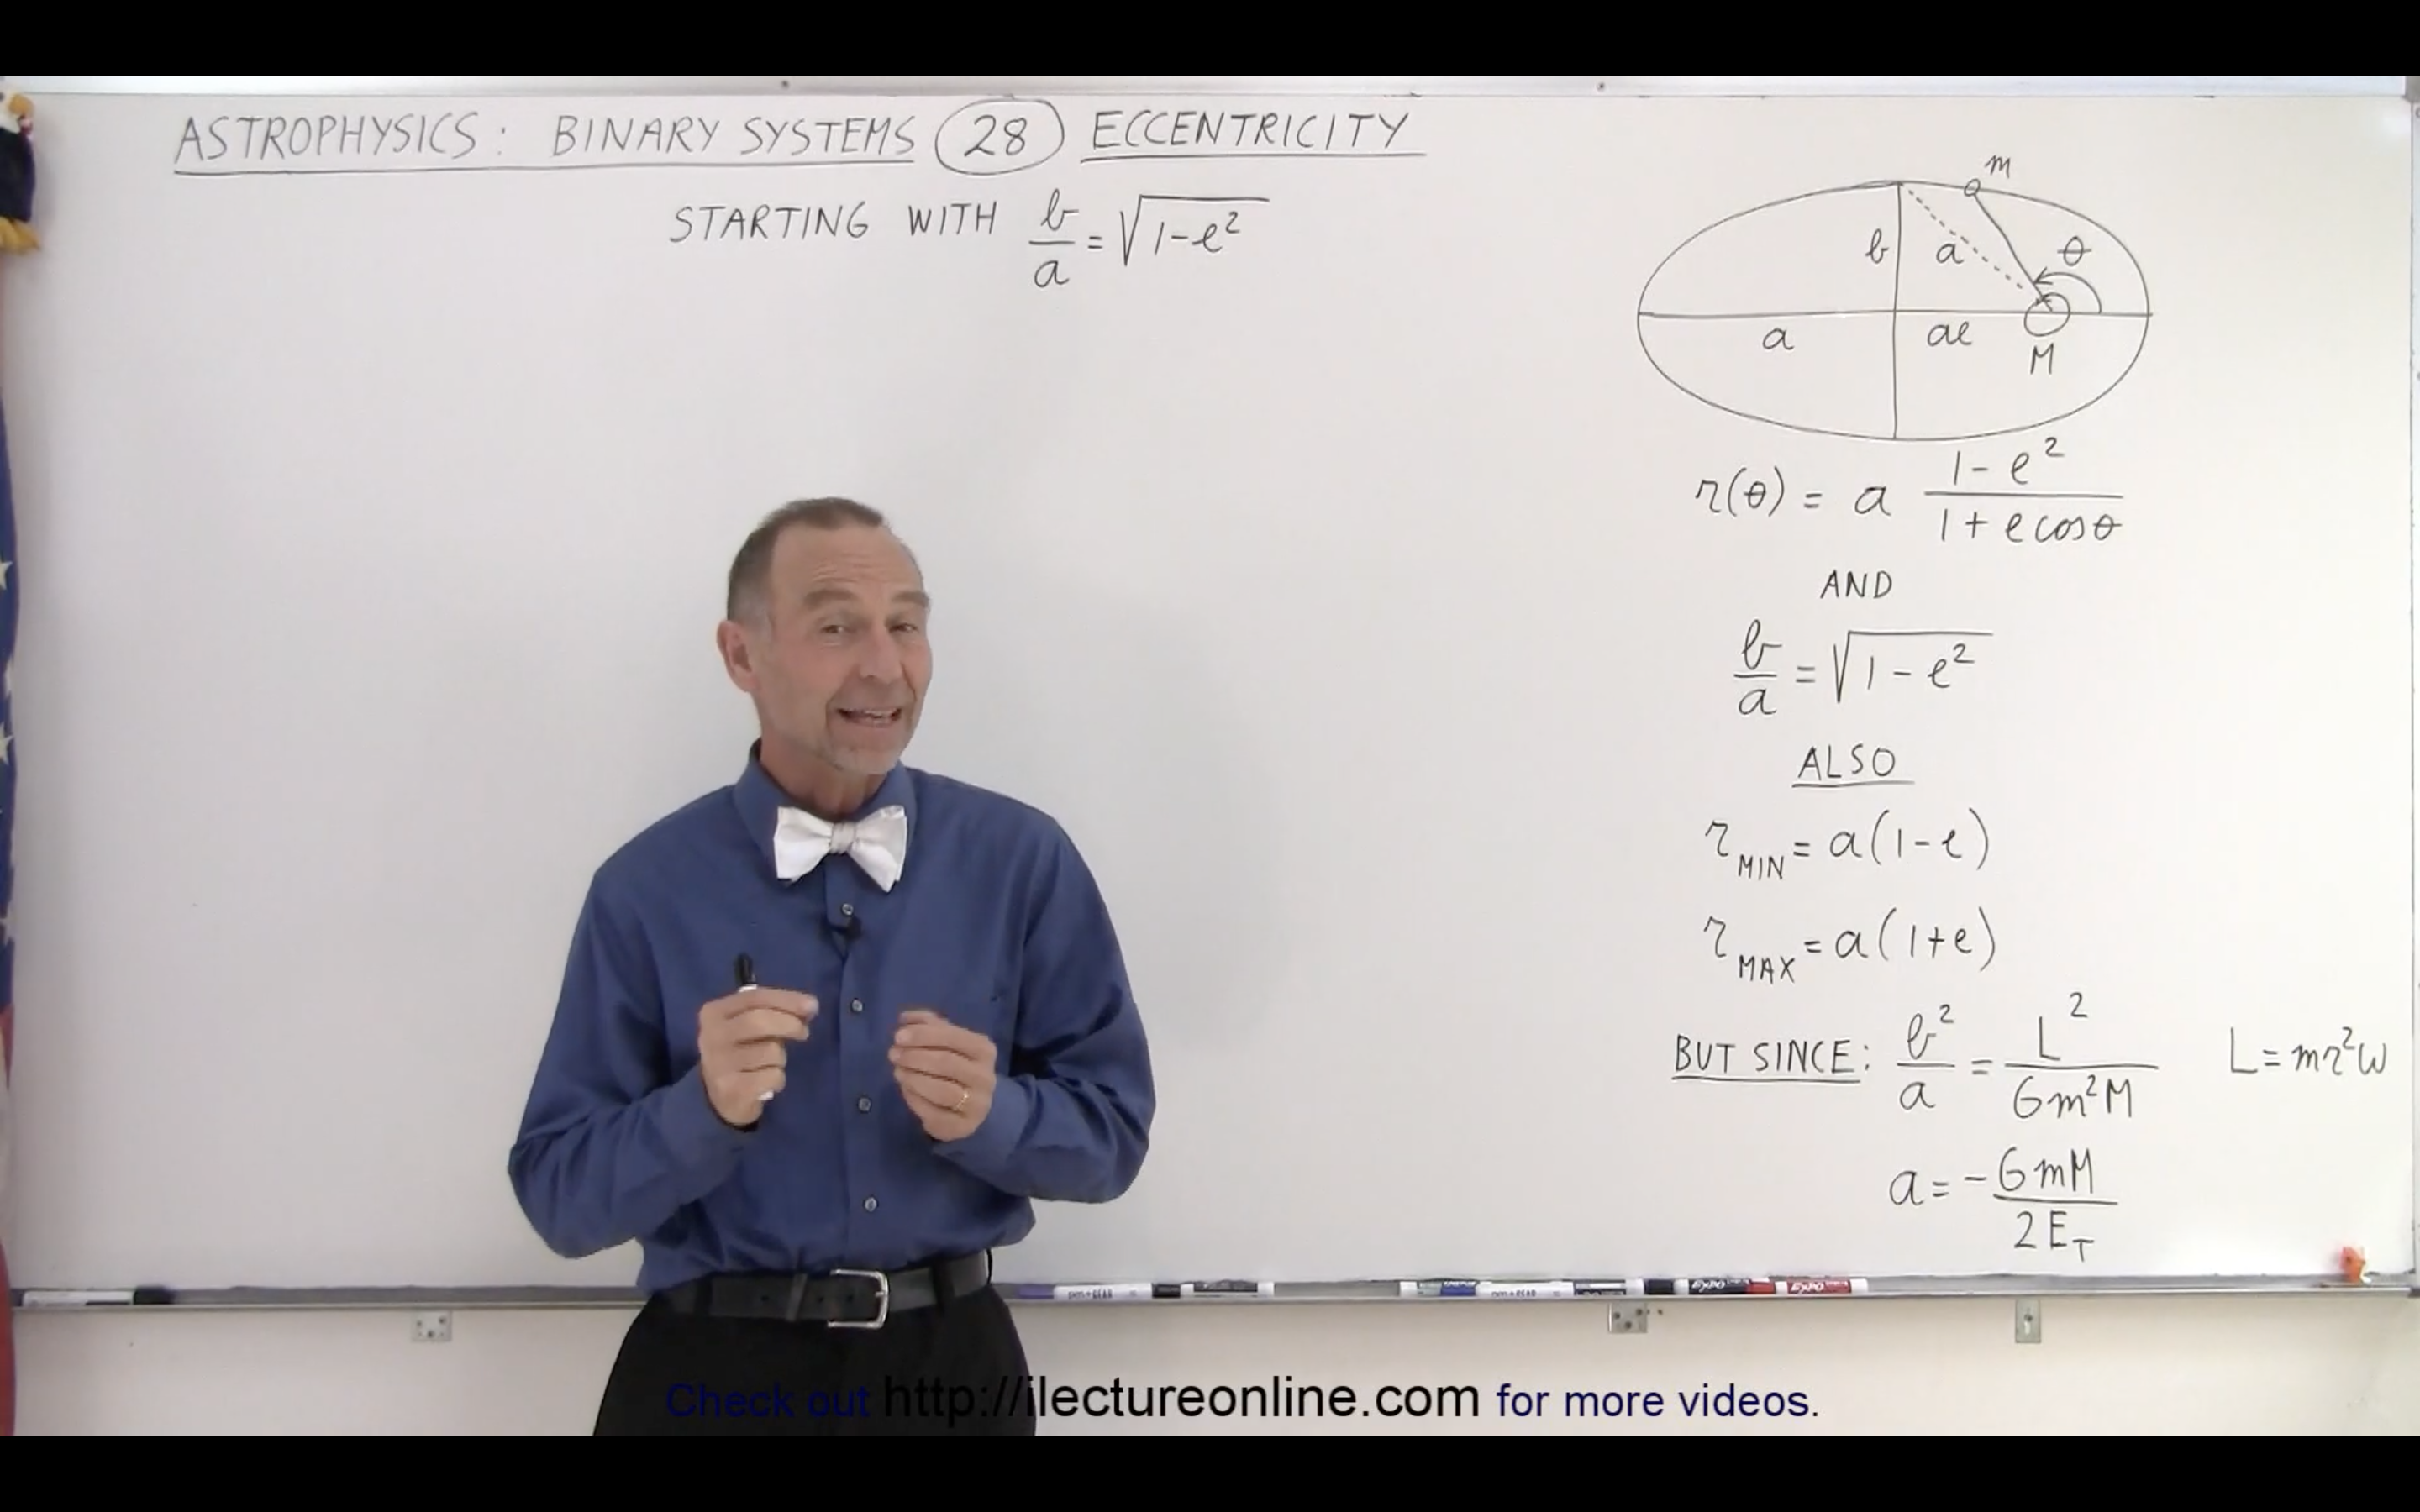 ASTROPHYSICS: BINARY SYSTEMS (28) ECCENTRICITY
STARTING WITH b/a = √(1-e²)
m
b a θ
a ae
M
r(θ) = a (1-e²)/(1+e cosθ)
AND
b/a = √(1-e²)
ALSO
r_MIN = a(1-e)
r_MAX = a(1+e)
BUT SINCE: b²/a = L²/(Gm²M) L=mr²ω
a = -GmM/(2E_T)
Check out http://ilectureonline.com for more videos.